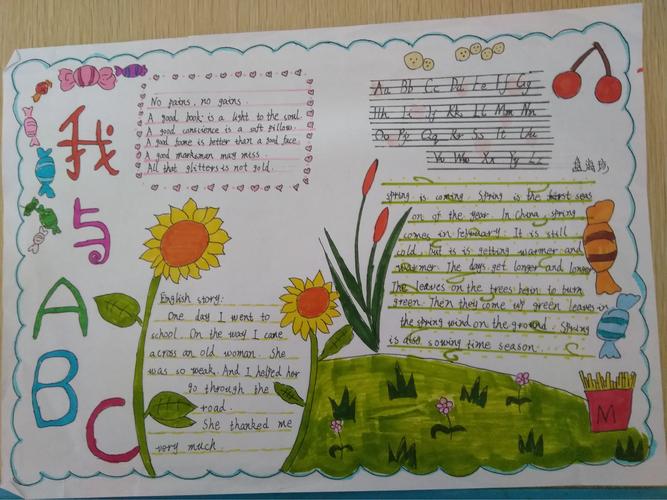 我
与
A
B
C
No pains, no gains.
A good book is a light to the soul.
A good conscience is a soft pillow.
A good fame is better than a good face.
A good marksman may miss.
All that glitters is not gold.
Aa Bb Cc Dd Ee Ff Gg
Hh Ii Jj Kk Ll Mm Nn
Oo Pp Qq Rr Ss Tt Uu
Vv Ww Xx Yy Zz
spring is coming. Spring is the first seas
on of the year. In China, spring
comes in February. It is still
cold. But is is getting warmer and
warmer. The days get longer and longer
The leaves on the trees begin to turn
green. Then they come up green leaves in
the spring wind on the ground. Spring
is also sowing time season.
English story:
One day I went to
school. On the way I came
across an old woman. She
was so weak. And I helped her
go through the
road.
She thanked me
very much.
M